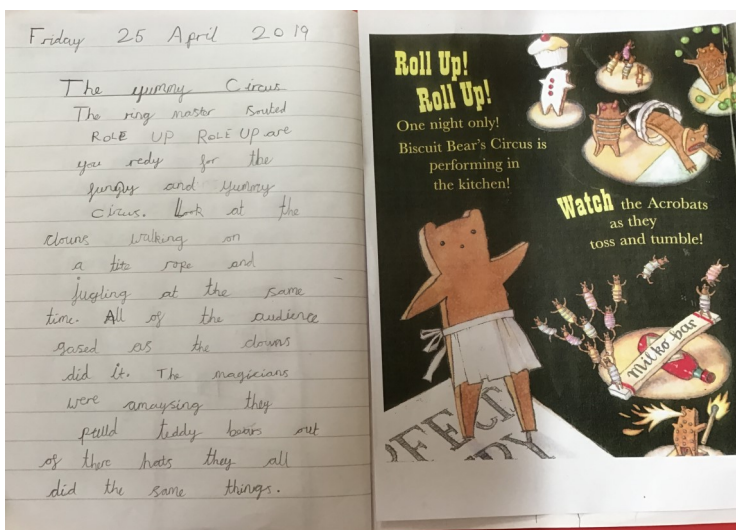 Friday 25 April 2019
The yummy Circus
The ring master souted
ROLE UP ROLE UP are
you redy for the
and yummy
circus. Look at the
clowns walking on
a tite rope and
juggling at the same
time. All of the audience
gased as the clowns
did it. The magicians
were amaysing they
pulld teddy bears out
of there hats they all
did the same things.
Roll Up!
Roll Up!
One night only!
Biscuit Bear's Circus is
performing in
the kitchen!
Watch the Acrobats
as they
toss and tumble!
Milko bar